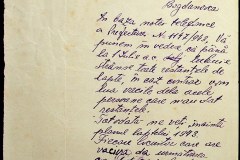 Bogdanesca
În baza notei telefonice
a Prefecturii N. 1172/943, Vă
punem în vedere că până
la 1 Iulie a.c.
strânse toate restanțele de
lapte, în caz contrar vom
lua vacile dela acele
persoane care mai au
restanțe.
Totodată ne veți înainta
planul laptelui 1943.
Fiecare locuitor care are
vacuța